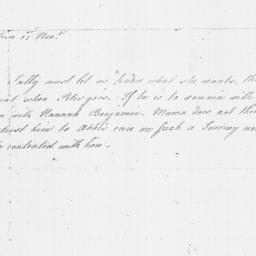 Sally must let us know what she wants, the
sent when Peter goes. If he is to remain with
with Hannah Benjamin. Mama does not thin
trust him to Abbe's care on such a Journey no
contented with him.